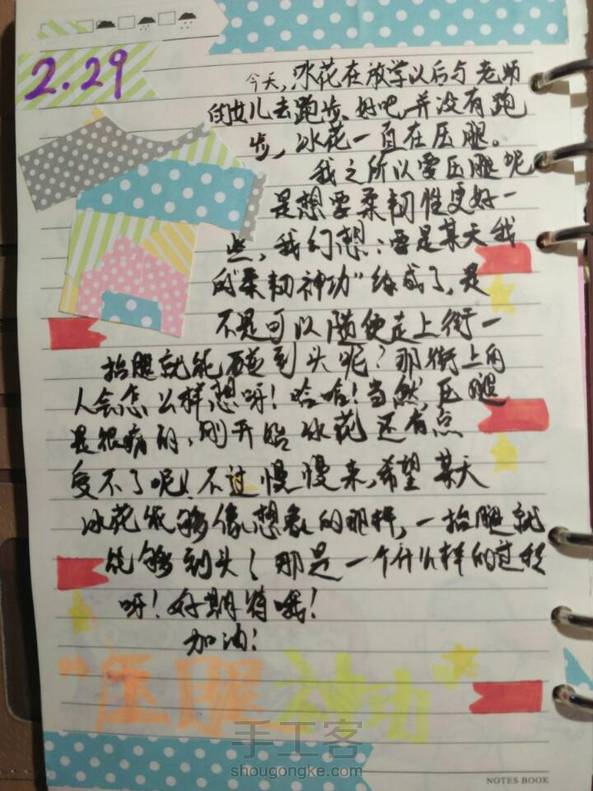 2.29
今天,冰花在放学以后与老师
的女儿去跑步、好吧,并没有跑
步,冰花一直在压腿。
我之所以要压腿呢
是想要柔韧性更好一
些,我幻想:要是某天我
的“柔韧神功”练成了,是
不是可以随便走上街一
抬腿就能碰到头呢?那街上的
人会怎么样想呀!哈哈!当然,压腿
是很痛的,刚开始冰花还有点
受不了呢!不过慢慢来,希望某天
冰花能够像想象的那样,一抬腿就
能够到头!那是一个什么样的过程
呀!好期待哦!
加油!
压腿神功
手工客
shougongke.com
NOTES BOOK